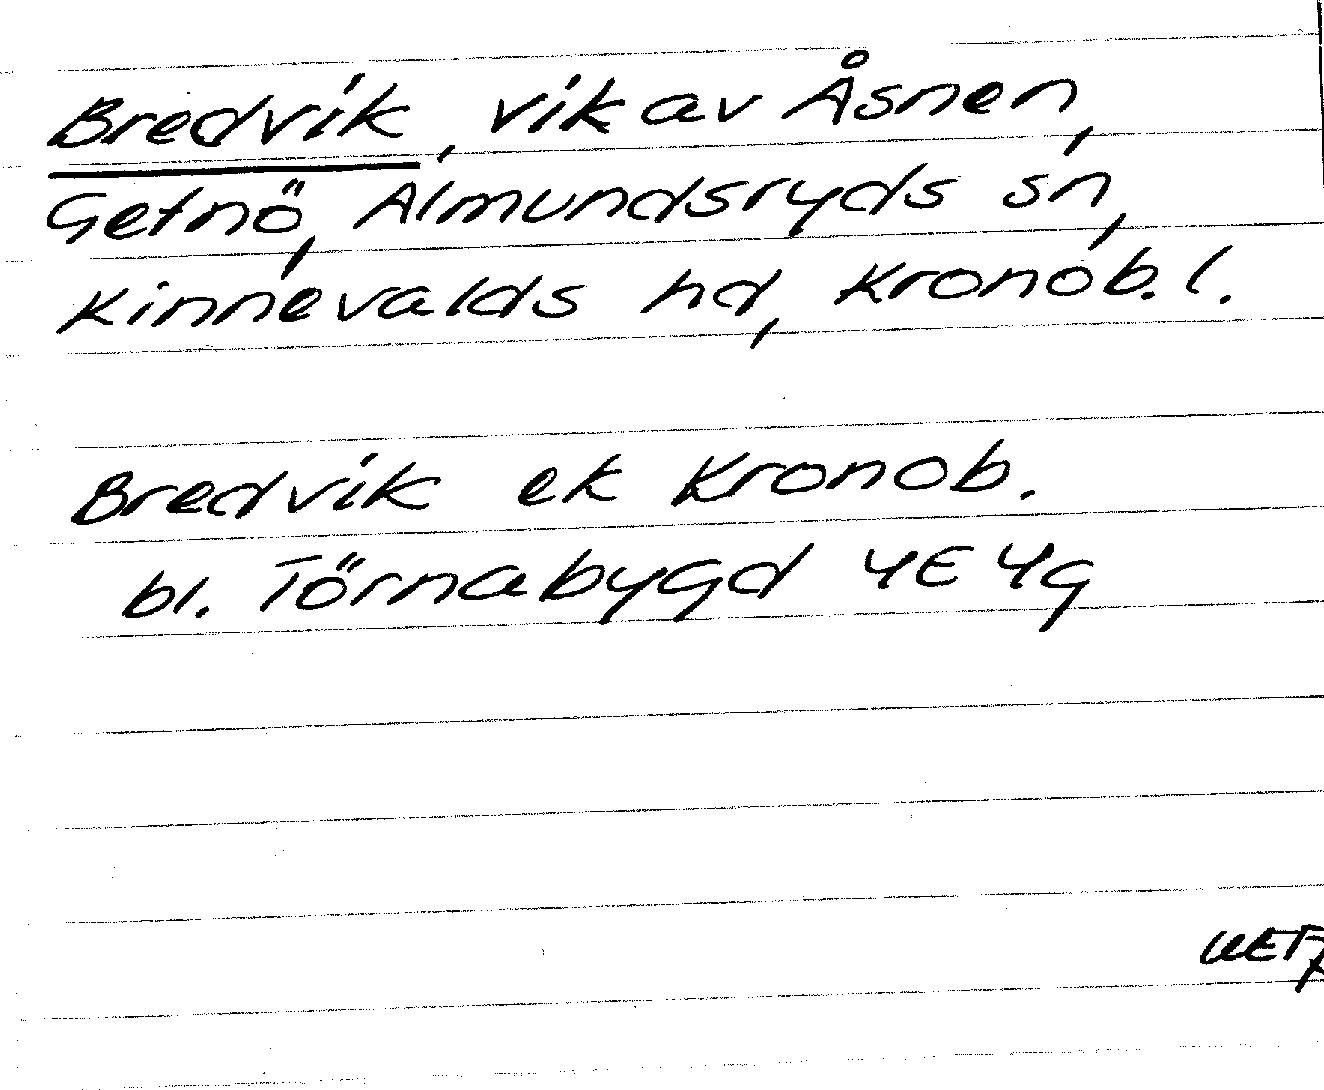 Bredvik, vik av Åsnen,
Getnö, Almundsryds sn,
Kinnevalds hd, Kronob. l.
Bredvik ek Kronob.
bl. Törnabygd 4E 4g